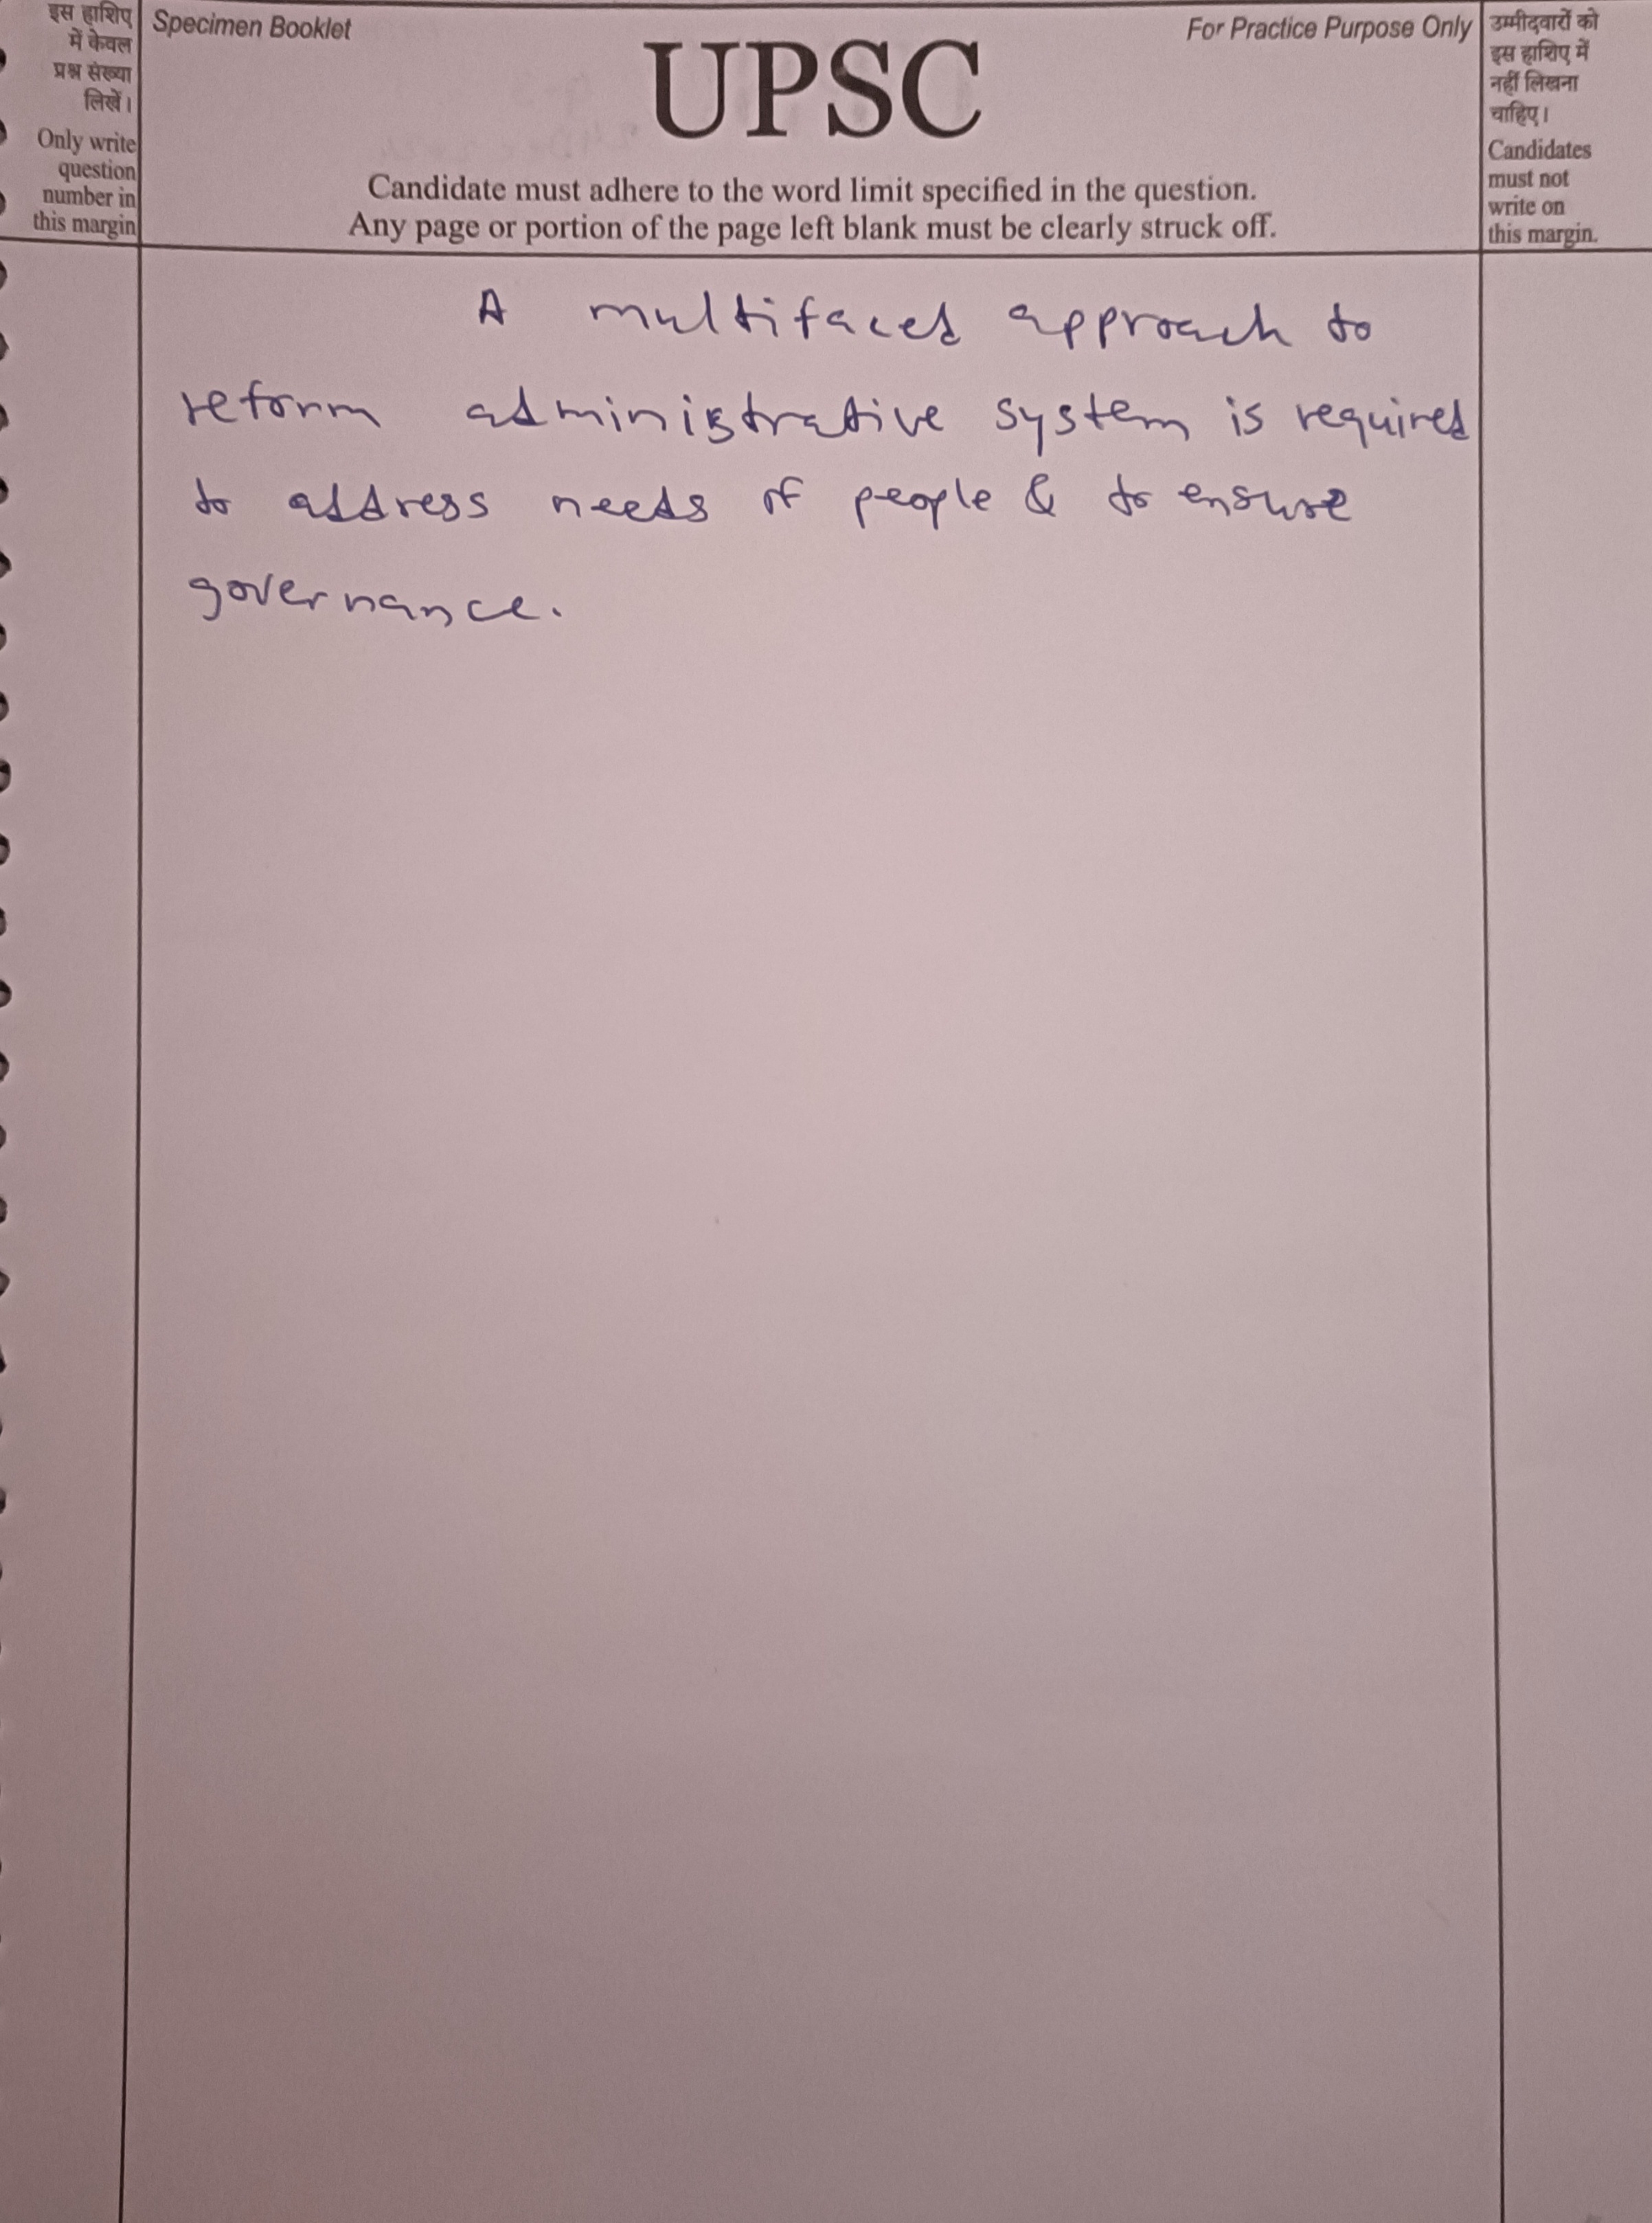 इस हाशिए
में केवल
प्रश्न संख्या
लिखें।
Only write
question
number in
this margin
Specimen Booklet
For Practice Purpose Only
UPSC
Candidate must adhere to the word limit specified in the question.
Any page or portion of the page left blank must be clearly struck off.
उम्मीदवारों को
इस हाशिए में
नहीं लिखना
चाहिए।
Candidates
must not
write on
this margin.
A multifaced approach to
reform administrative system is required
to address needs of people & to ensure
governance.